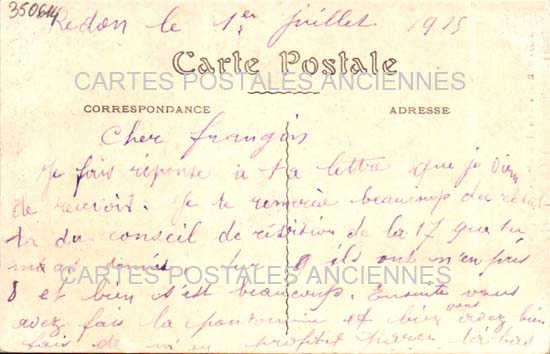 350614
Redon le 1er juillet 1915
Carte Postale
CARTES POSTALES ANCIENNES
CORRESPONDANCE
ADRESSE
Cher frangin
Je fais réponse à ta lettre que je viens
de recevoir. Je te remercie beaucoup du résul-
ta du conseil de révision de la 17 que tu
m'as ils ont m'en pris
8 et bien s'est beaucoup. Ensuite vous
CARTES POSTALES ANCIENNES
avez fais la et bien vous avez bien
fais de m'en profiter là bas